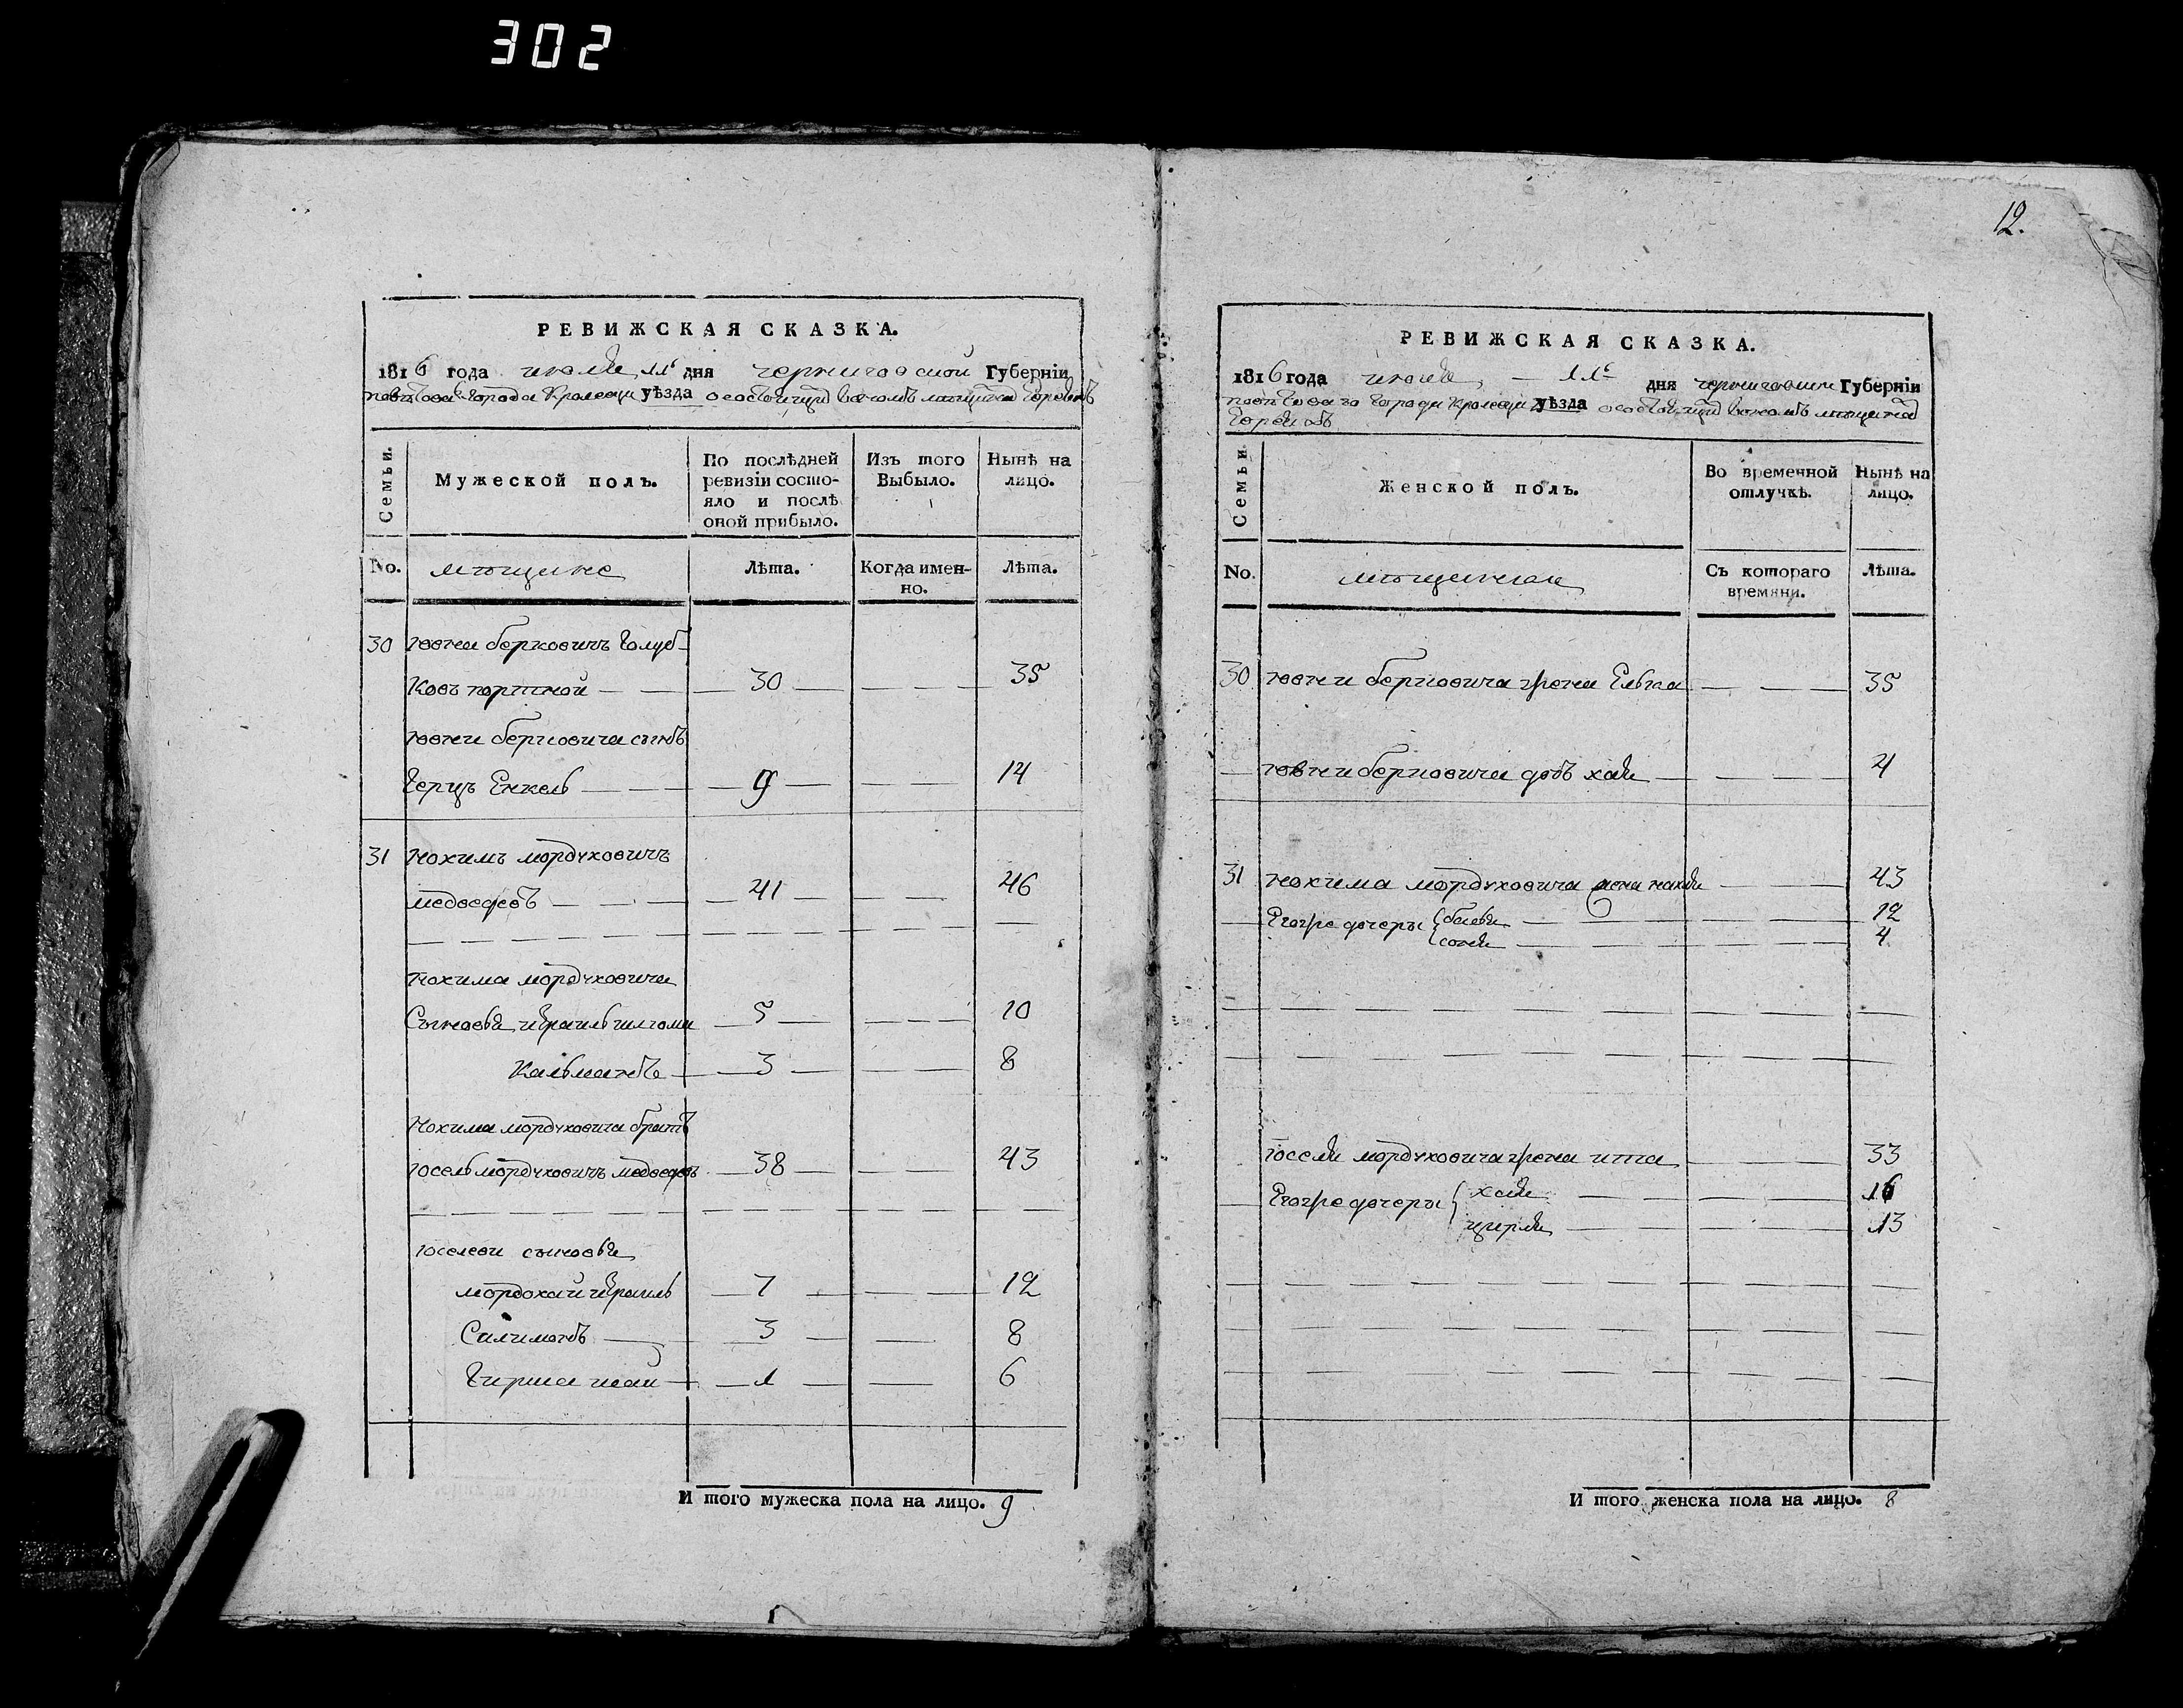 302
12.
РЕВИЖСКАЯ СКАЗКА.
1816 года июля 11г дня черниговской Губерніи
повѣтоваго города Кролевца уѣзда о состоящихъ въ ономъ мѣщанахъ Евреяхъ
Семьи.
Мужеской полъ.
По послѣдней ревизіи состо-
яло и послѣ
оной прибыло.
Изъ того
Выбыло.
Нынѣ на
лицо.
No.
мѣщане
Лѣта.
Когда имен-
но.
Лѣта.
30 берковичъ Голуб-
ковъ портной — 30 — 35
берковича сынъ
Герцъ Енкель — 9 — 14
31 Нохимъ мордуховичъ
медведевъ — 41 — 46
Нохима мордуховича
Сыновья израиль шлиома — 5 — 10
Кальманъ — 3 — 8
Нохима мордуховича братъ
Іосель мордуховичъ медведевъ — 38 — 43
Іоселевы сыновья
мордохай израиль — 7 — 12
Салимонъ — 3 — 8
Гирша — 1 — 6
И того мужеска пола на лицо. 9
РЕВИЖСКАЯ СКАЗКА.
1816 года июля, — 11г дня черниговской Губерніи
повѣтоваго города Кролевца уѣзда о состоящихъ въ ономъ мѣщанахъ
Евреяхъ
Семьи.
Женской полъ.
Во временной
отлучкѣ.
Нынѣ на
лицо.
No.
мѣщанки
Съ котораго
времяни.
Лѣта.
30 берковича жена Елька — 35
берковича дочь хая — 4
31 Нохима мордуховича жена — 43
Егожъ дочеры — 12
соня — 4
Іоселя мордуховича жена ита — 33
Егожъ дочеры хая — 16
цирля — 13
И того женска пола на лицо. 8